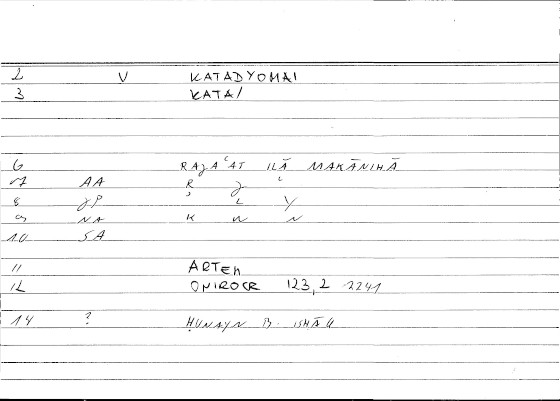 2 V KATADYOMAI
3 KATA/
6 RAJAʿAT ILĀ MAKĀNIHĀ
7 AA R J ʿ
8 JP ʾ L Y
9 NA K W N
10 SA
11 ARTEM
12 ONIROCR 123,2 2241
14 ? ḤUNAYN B. ISḤĀQ